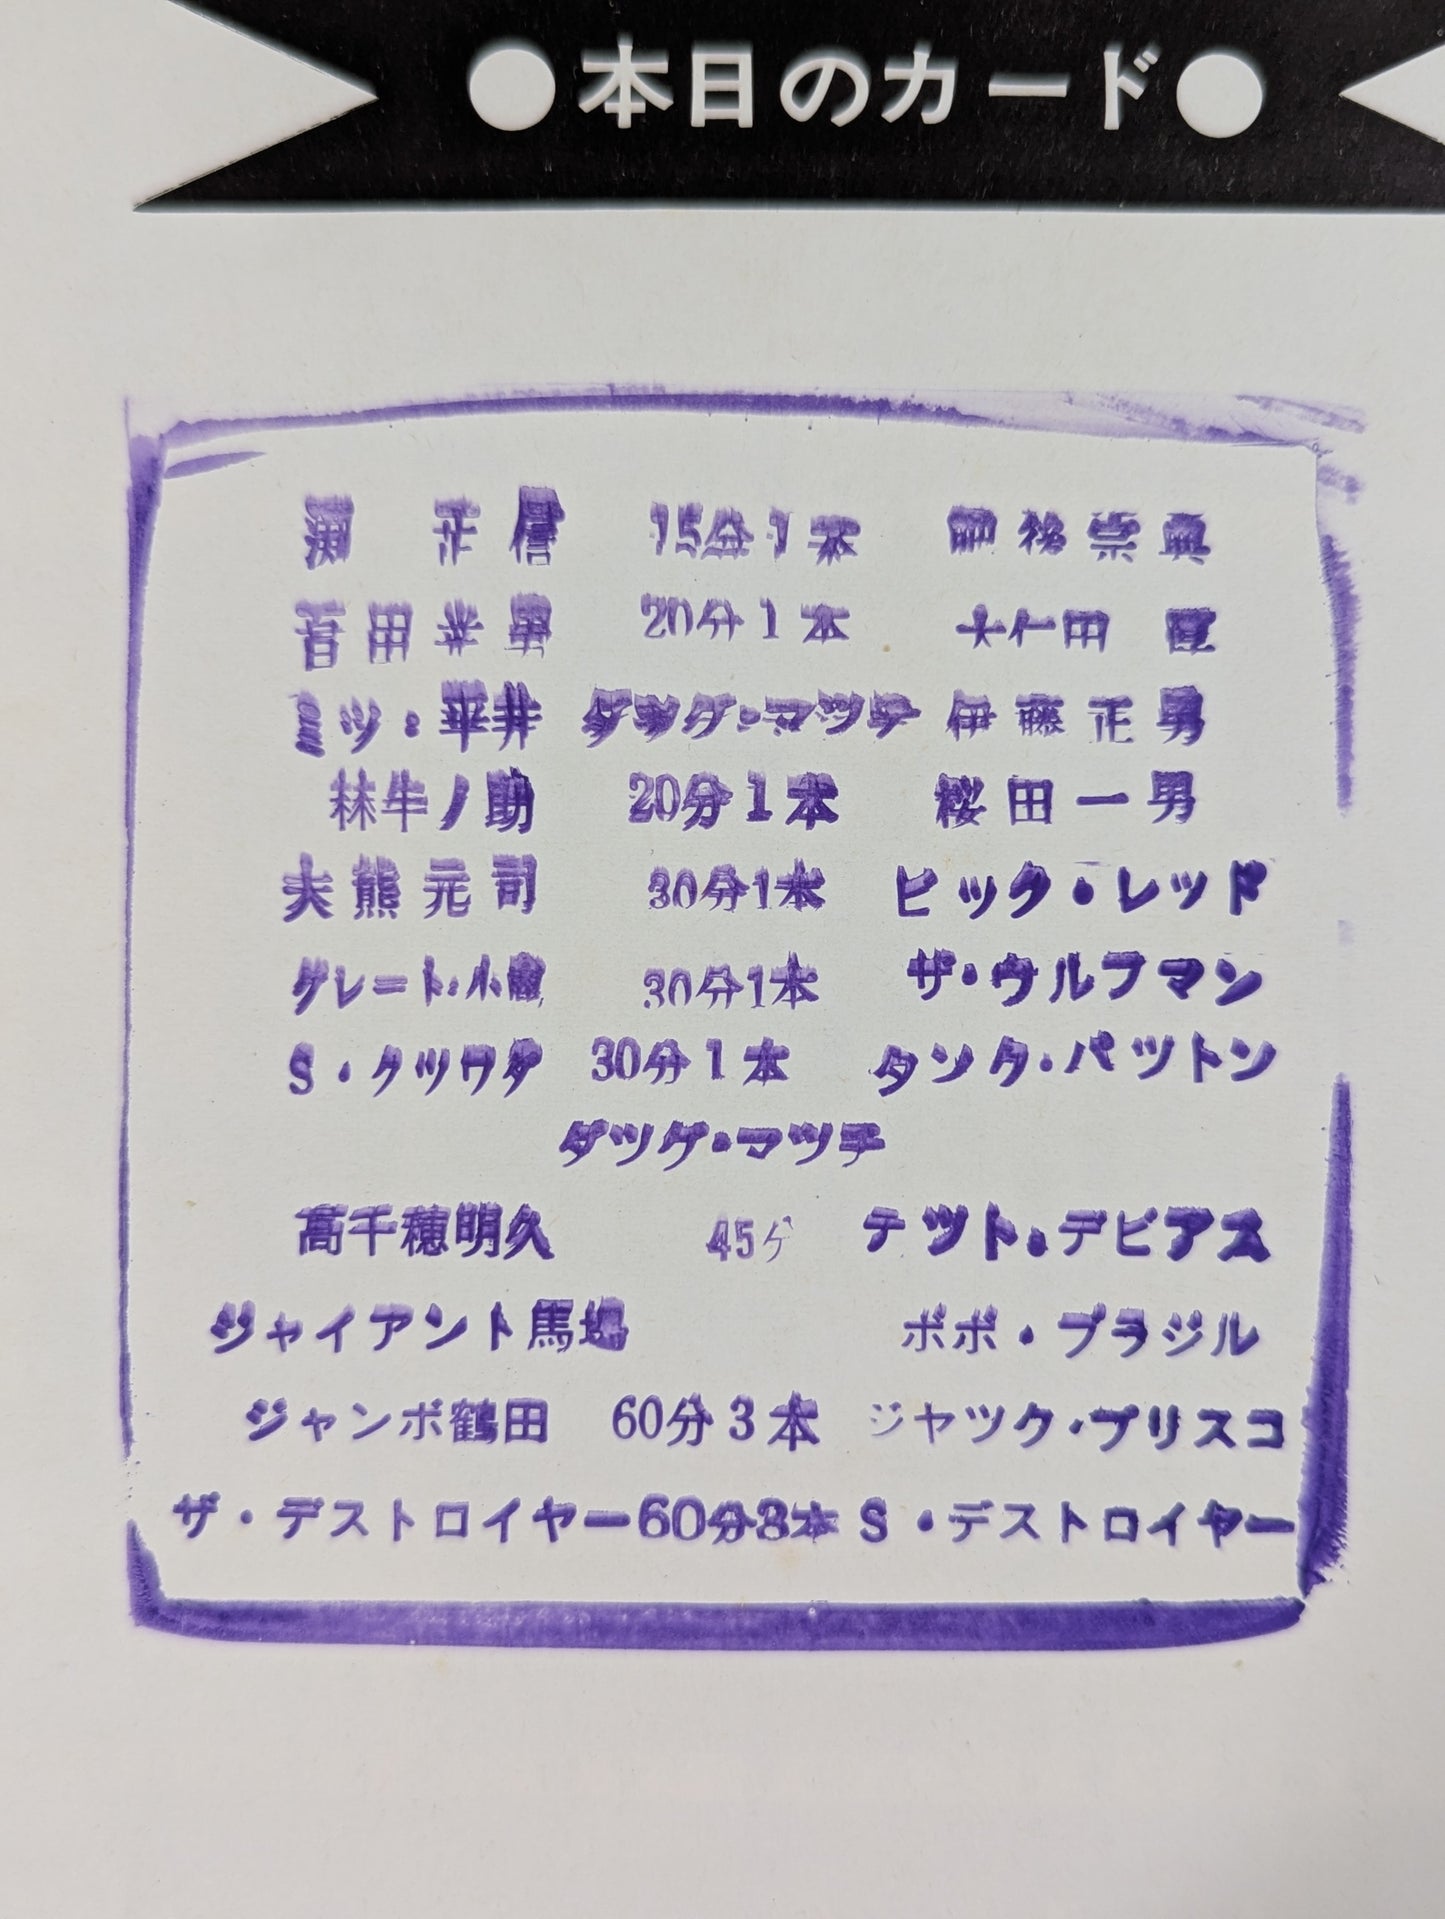 ●本日のカード●
渕 正信 15分1本 肥後宗典
百田光男 20分1本 大仁田 厚
ミツ・平井 タッグ・マツチ 伊藤正男
林牛ノ助 20分1本 桜田一男
大熊元司 30分1本 ビック・レッド
グレート・小鹿 30分1本 ザ・ウルフマン
S・クツワダ 30分1本 タンク・パツトン
タツグ・マツチ
高千穂明久 45分 テツト・デビアス
ジャイアント馬場 ボボ・ブラジル
ジャンボ鶴田 60分3本 ジヤツク・ブリスコ
ザ・デストロイヤー 60分3本 S・デストロイヤー